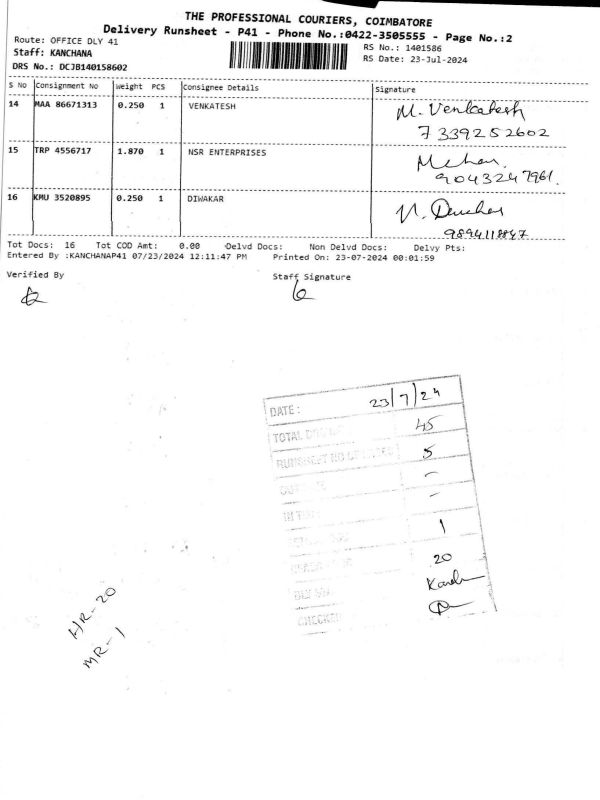 THE PROFESSIONAL COURIERS, COIMBATORE
Delivery Runsheet - P41 - Phone No.:0422-3505555 - Page No.:2
Route: OFFICE DLY 41
RS No.: 1401586
Staff: KANCHANA
RS Date: 23-Jul-2024
DRS No.: DCJB140158602
S No Consignment No Weight PCS Consignee Details Signature
14 MAA 86671313 0.250 1 VENKATESH M. Venkatesh
7339252602
15 TRP 4556717 1.870 1 NSR ENTERPRISES Mohan.
9043247961.
16 KMU 3520895 0.250 1 DIWAKAR
9894118847
Tot Docs: 16 Tot COD Amt: 0.00 Delvd Docs: Non Delvd Docs: Delvy Pts:
Entered By :KANCHANAP41 07/23/2024 12:11:47 PM Printed On: 23-07-2024 00:01:59
Verified By Staff Signature
DATE : 23/7/24
TOTAL 45
RUNSHEET NO 5
-
-
1
20
CHECKED
HR-20
MR-1